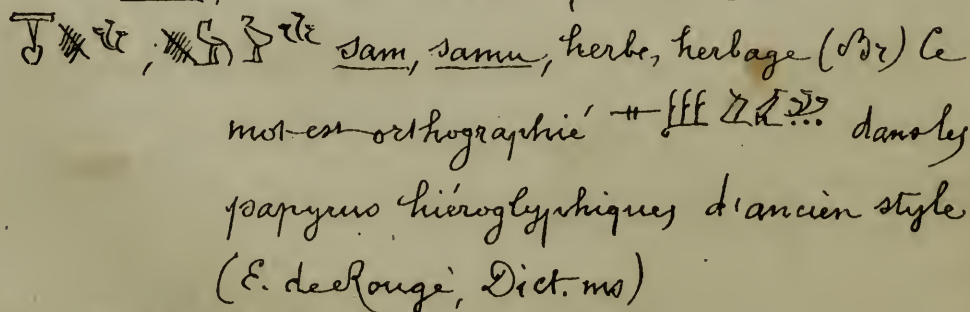 sam, samu, herbe, herbage (Br) Ce
mot est orthographié dans les
papyrus hiéroglyphiques d'ancien style
(E. de Rougé, Dict. ms)